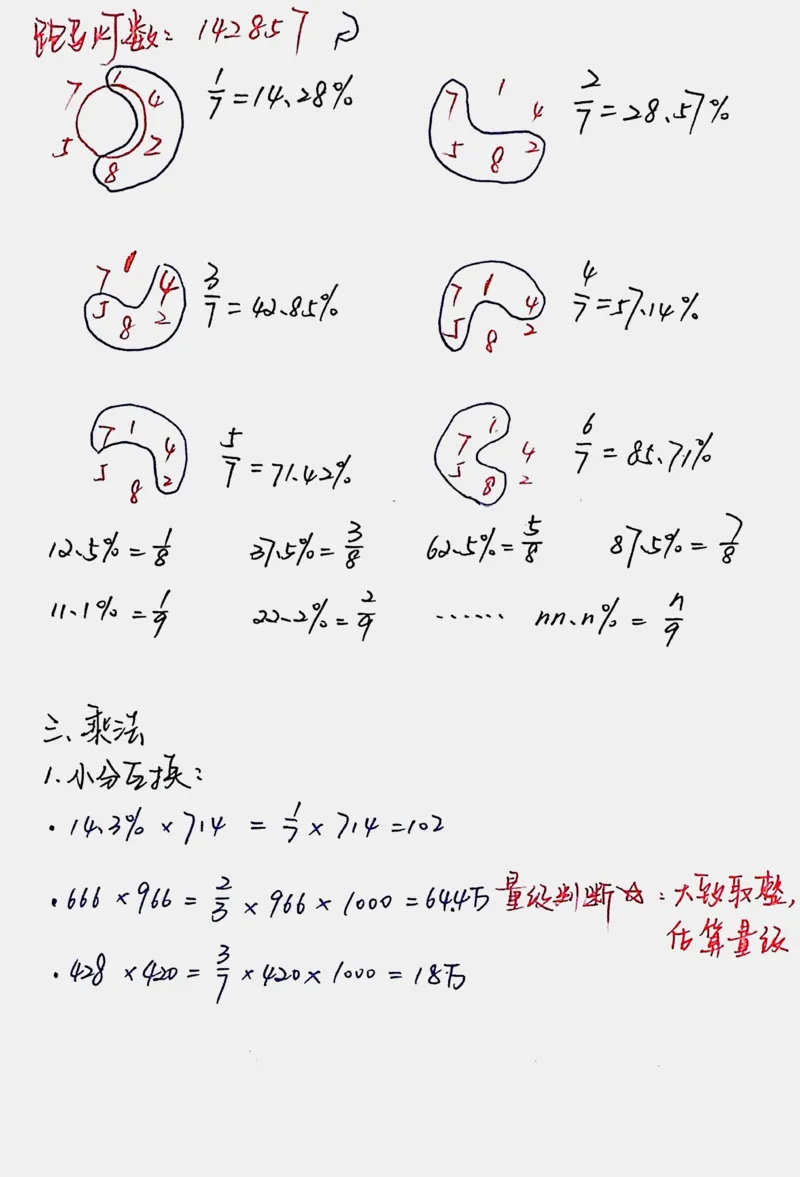 跑马灯数：142857
7 1 4 2 8 5
1/7=14.28%
7 1 4 2 8 5
2/7=28.57%
7 1 4 2 8 5
3/7=42.85%
7 1 4 2 8 5
4/7=57.14%
7 1 4 2 8 5
5/7=71.42%
7 1 4 2 8 5
6/7=85.71%
12.5%=1/8 37.5%=3/8 62.5%=5/8 87.5%=7/8
11.1%=1/9 22.2%=2/9 …… nn.n%=n/9
三、乘法
1.小分互换：
·14.3%×714=1/7×714=102
·666×966=2/3×966×1000=64.4万 量级判断☆：大致取整，
估算量级
·428×420=3/7×420×1000=18万